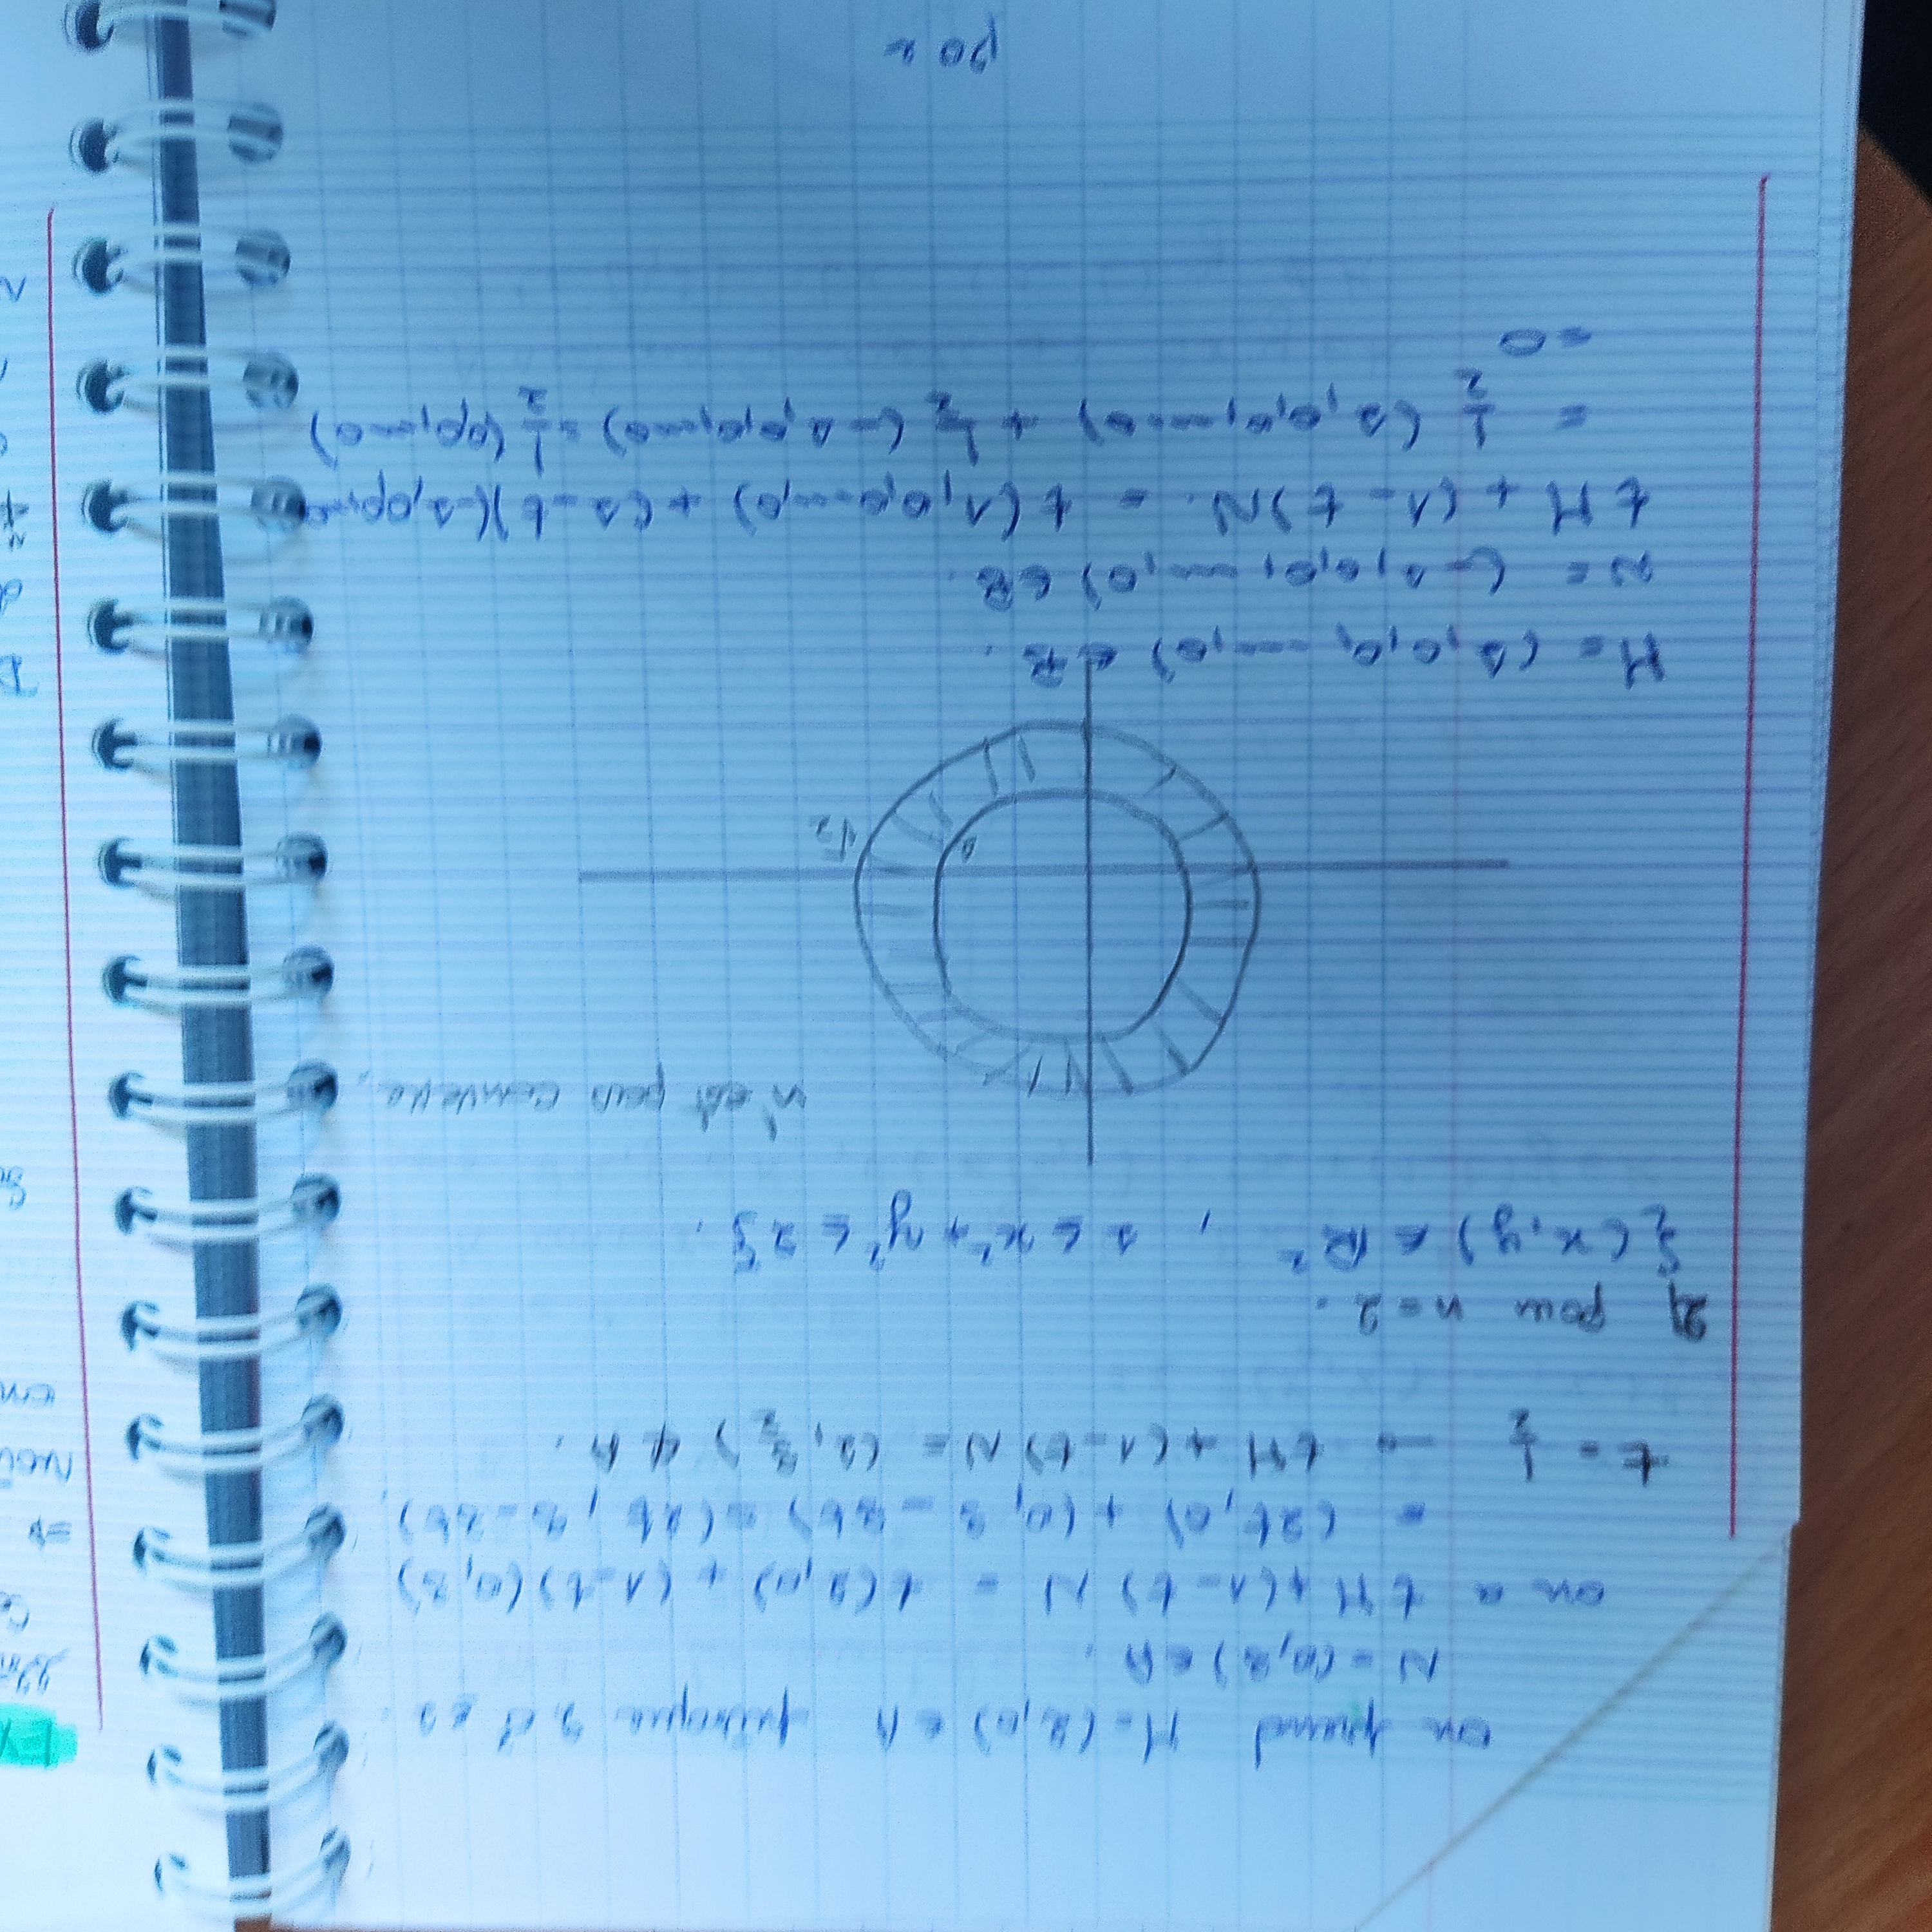 on prend M = (2,0) ∈ A puisque
N = (0,3) ∈ A.
on a tM + (1-t) N = t(2,0) + (1-t)(0,3)
= (2t,0) + (0, 3-3t) = (2t, 3-3t).
t = 1/2 → tM + (1-t) N = (1, 3/2) ∉ A.
2) pour n = 2.
{(x,y) ∈ ℝ², 1 ≤ x² + y² ≤ 2}.
n'est pas convexe.
√2
M = (1,0,0,...,0) ∈ B.
N = (-1,0,0,...,0) ∈ B.
tM + (1-t)N. = t(1,0,0...,0) + (1-t)(-1,0,0,...
= 1/2 (1,0,0,...,0) + 1/2 (-1,0,0,...0) = 1/2 (0,0,...0)
= 0